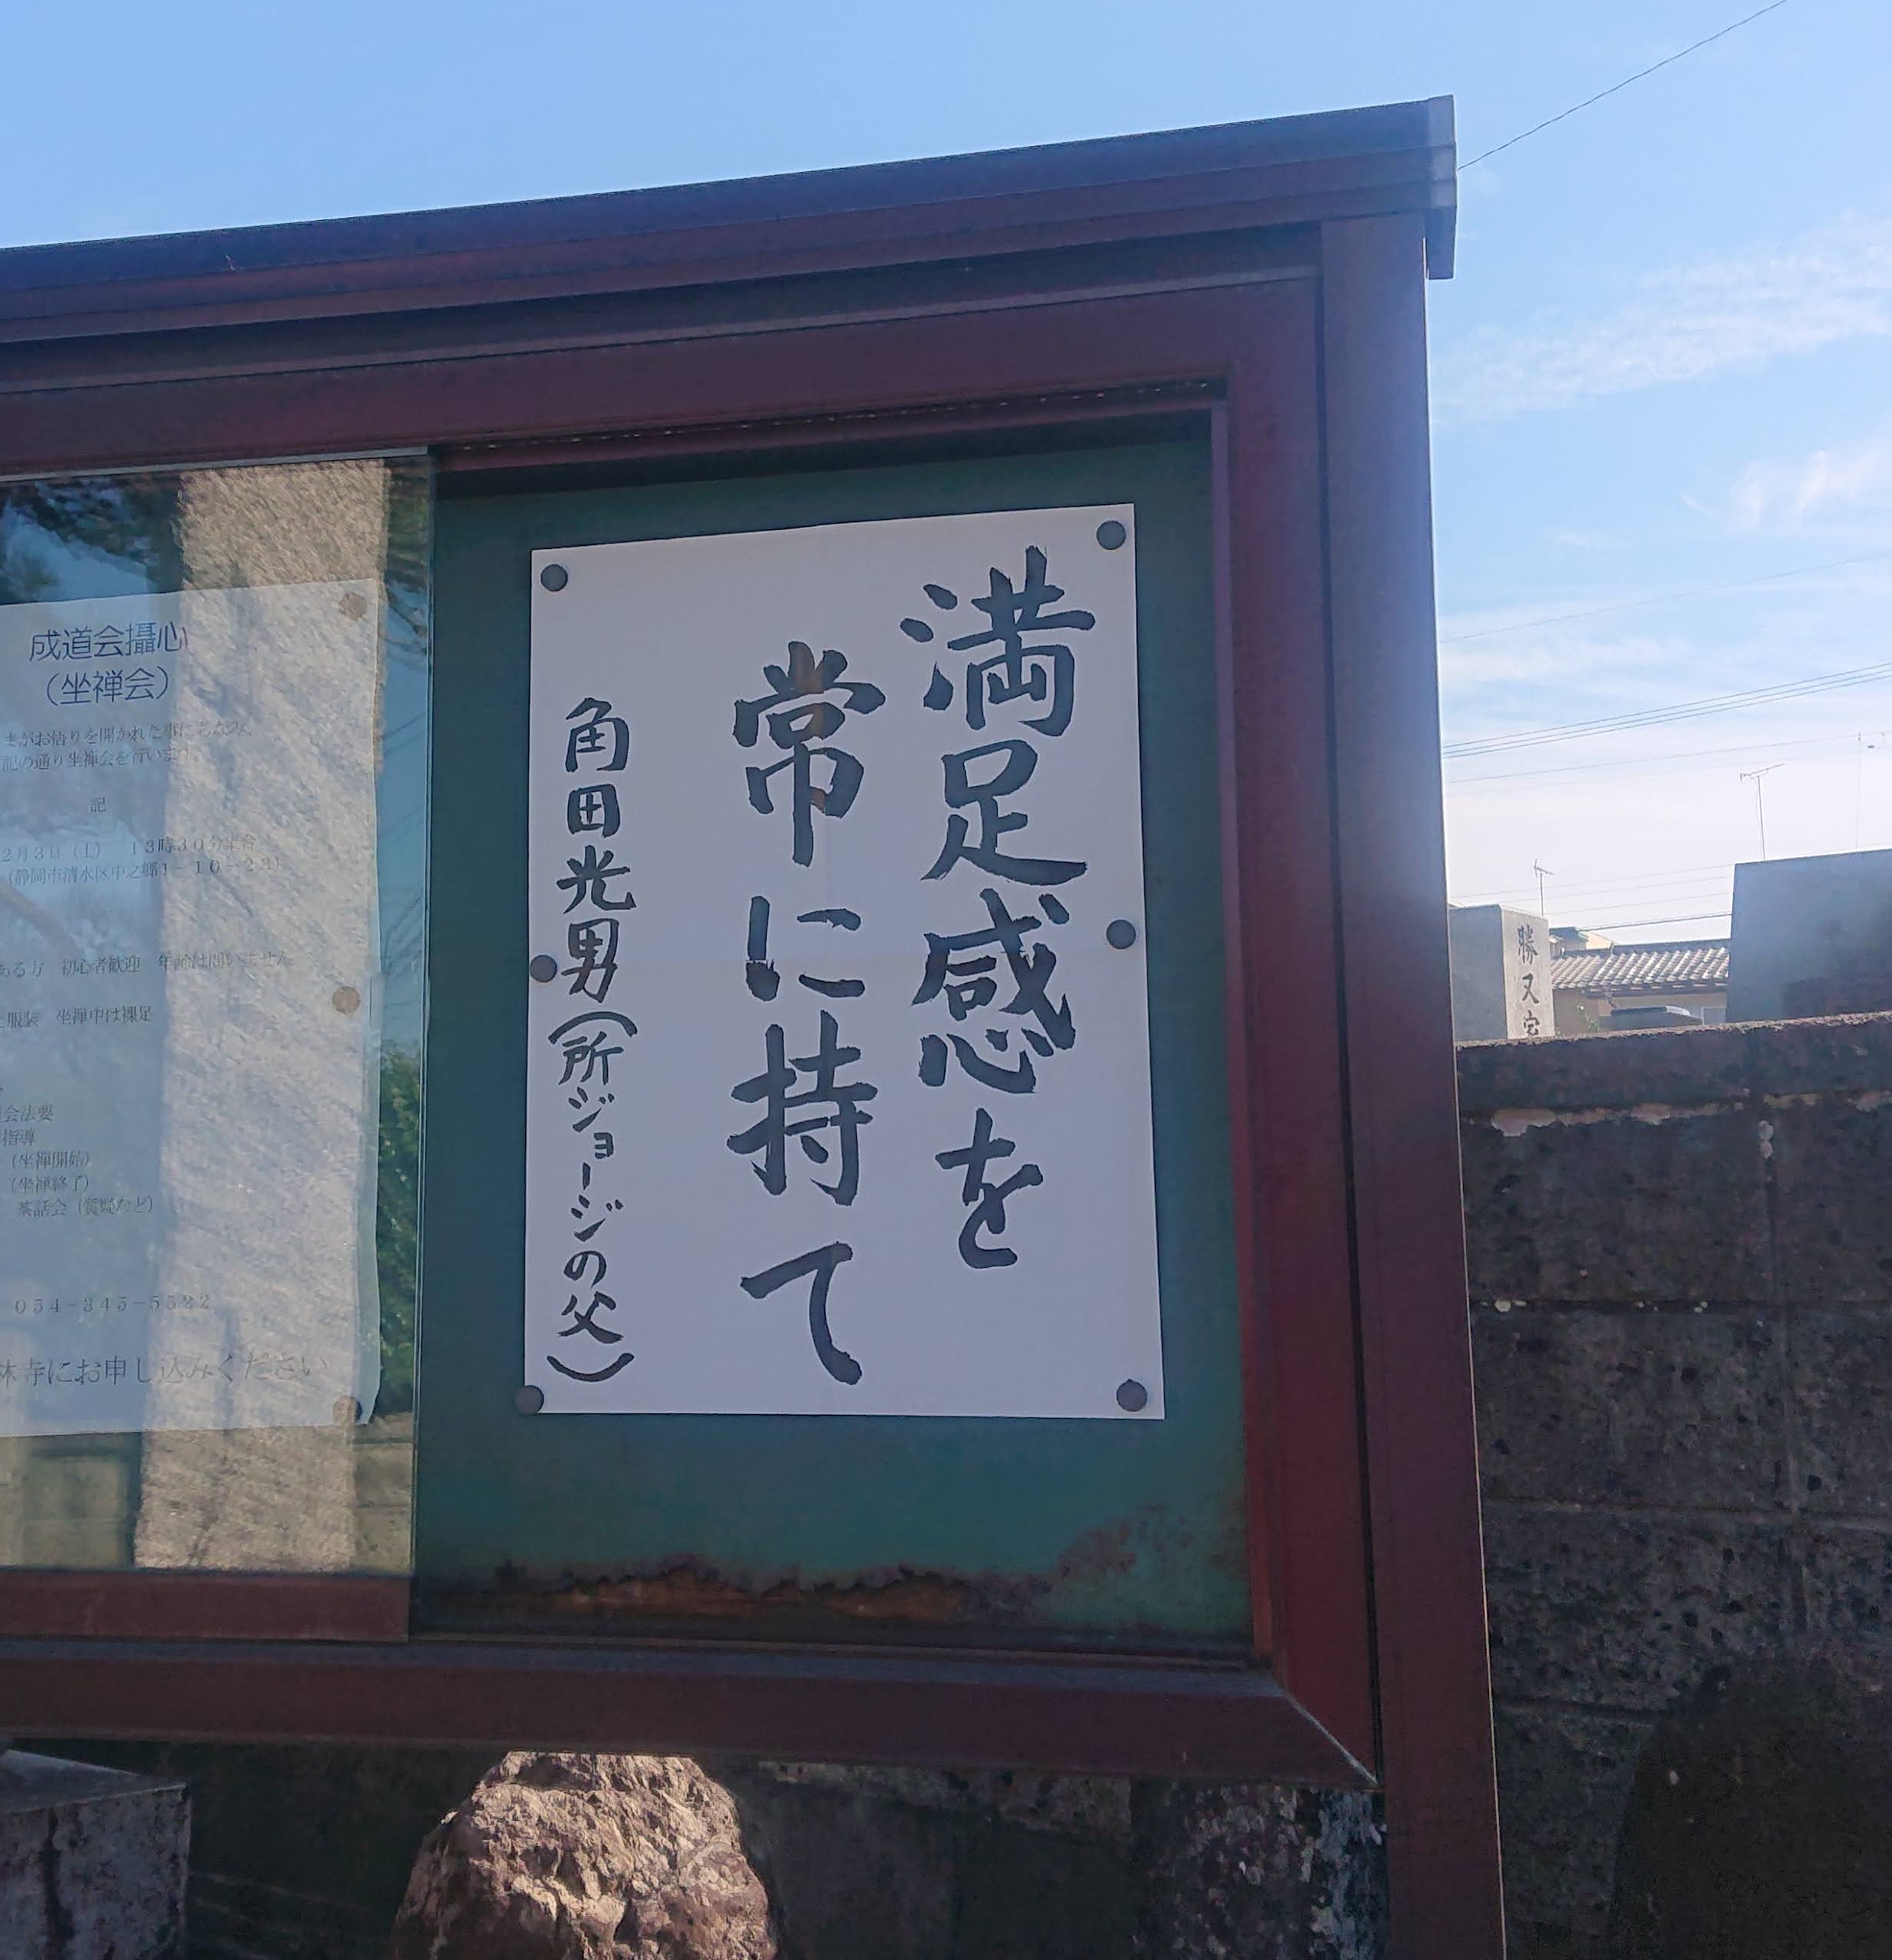 満足感を
常に持て
角田光男(所ジョージの父)
成道会攝心
(坐禅会)
まがお悟りを開かれた事にちなみ、
記の通り坐禅会を行います。
記
2月3日(土) 13時30分集合
(静岡市清水区中之郷1-10-23)
ある方 初心者歓迎 年齢は問いません
服装 坐禅中は裸足
会法要
指導
(坐禅開始)
(坐禅終了)
茶話会(質疑など)
054-345-5522
林寺にお申し込みください
勝又家